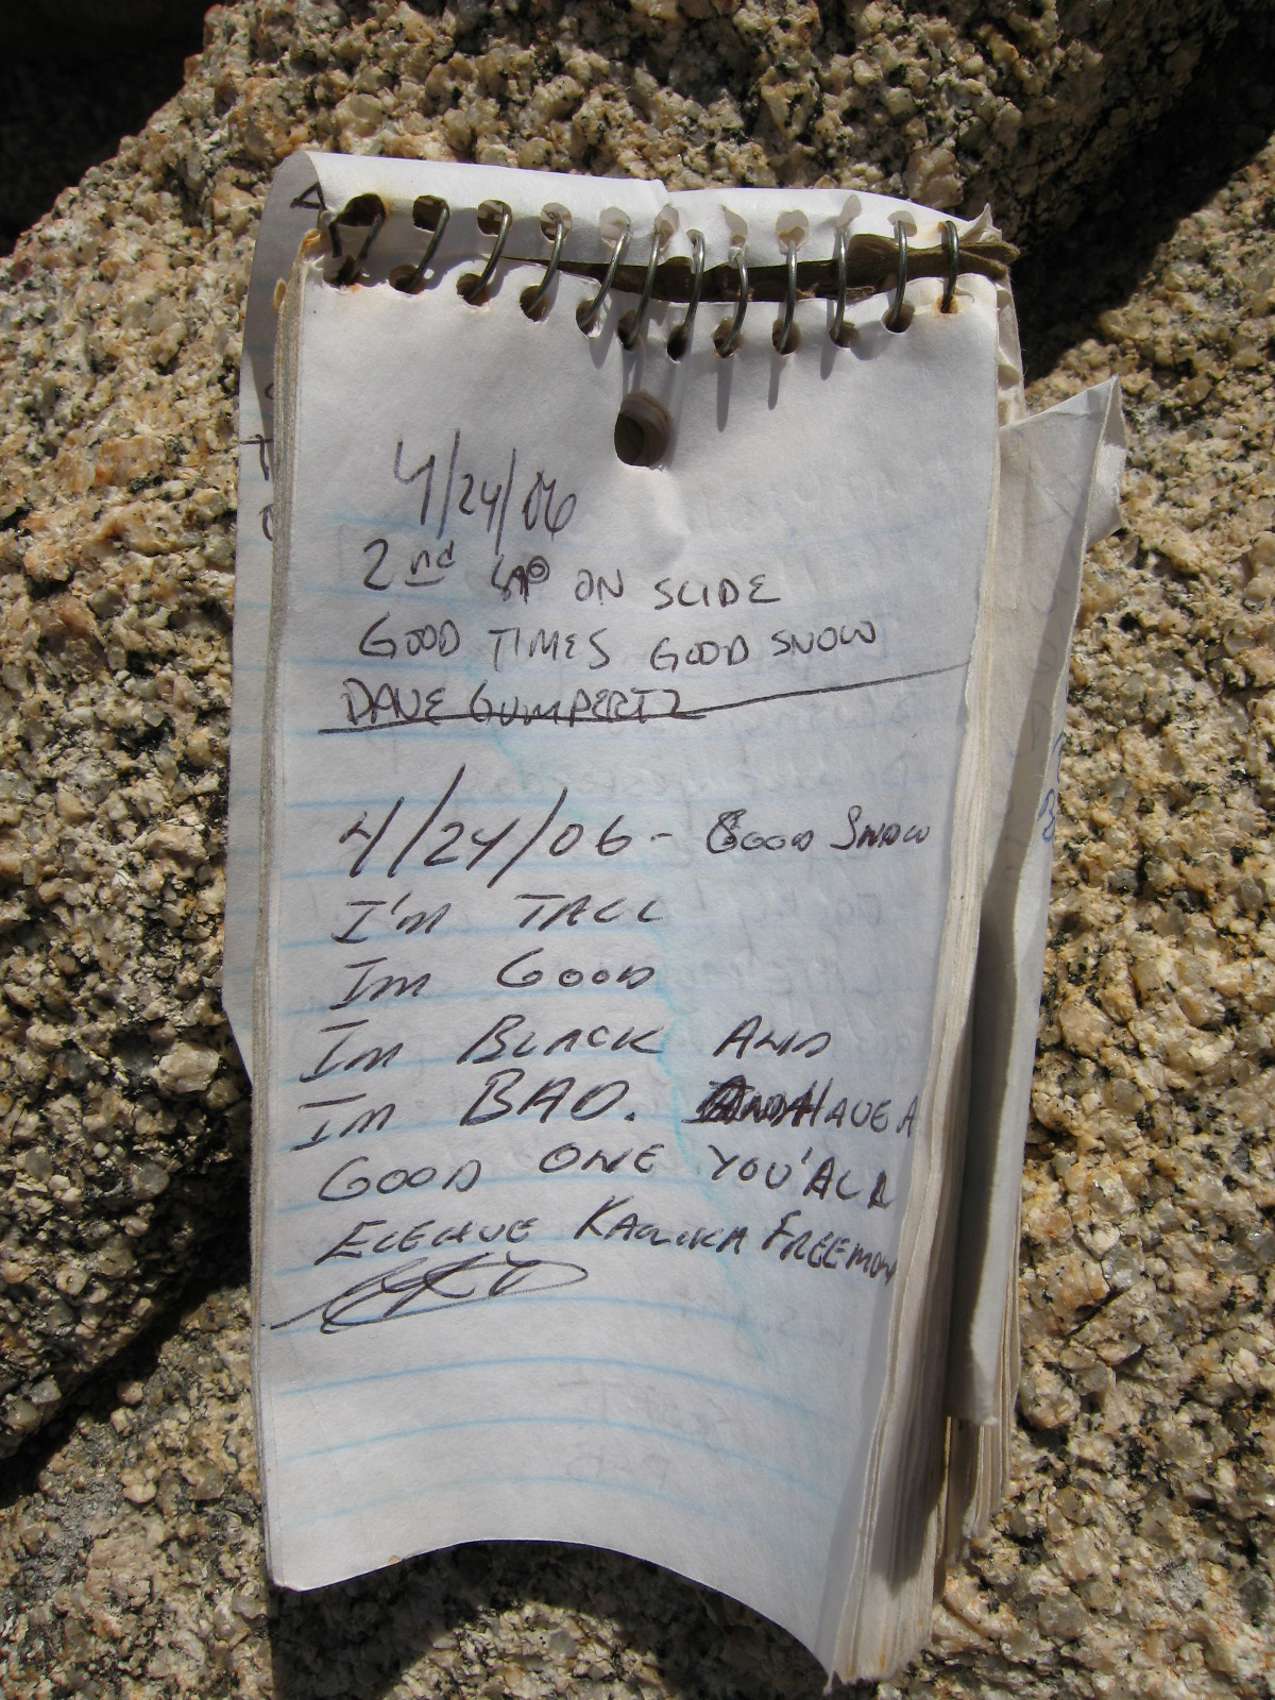 4/24/06
2nd LAP ON SLIDE
GOOD TIMES GOOD SNOW
DANE GUMPERTZ
4/24/06 - GOOD SNOW
I'M TALL
IM GOOD
IM BLACK AND
IM BAD. HAVE A
GOOD ONE YOU'ALL
FREEMON